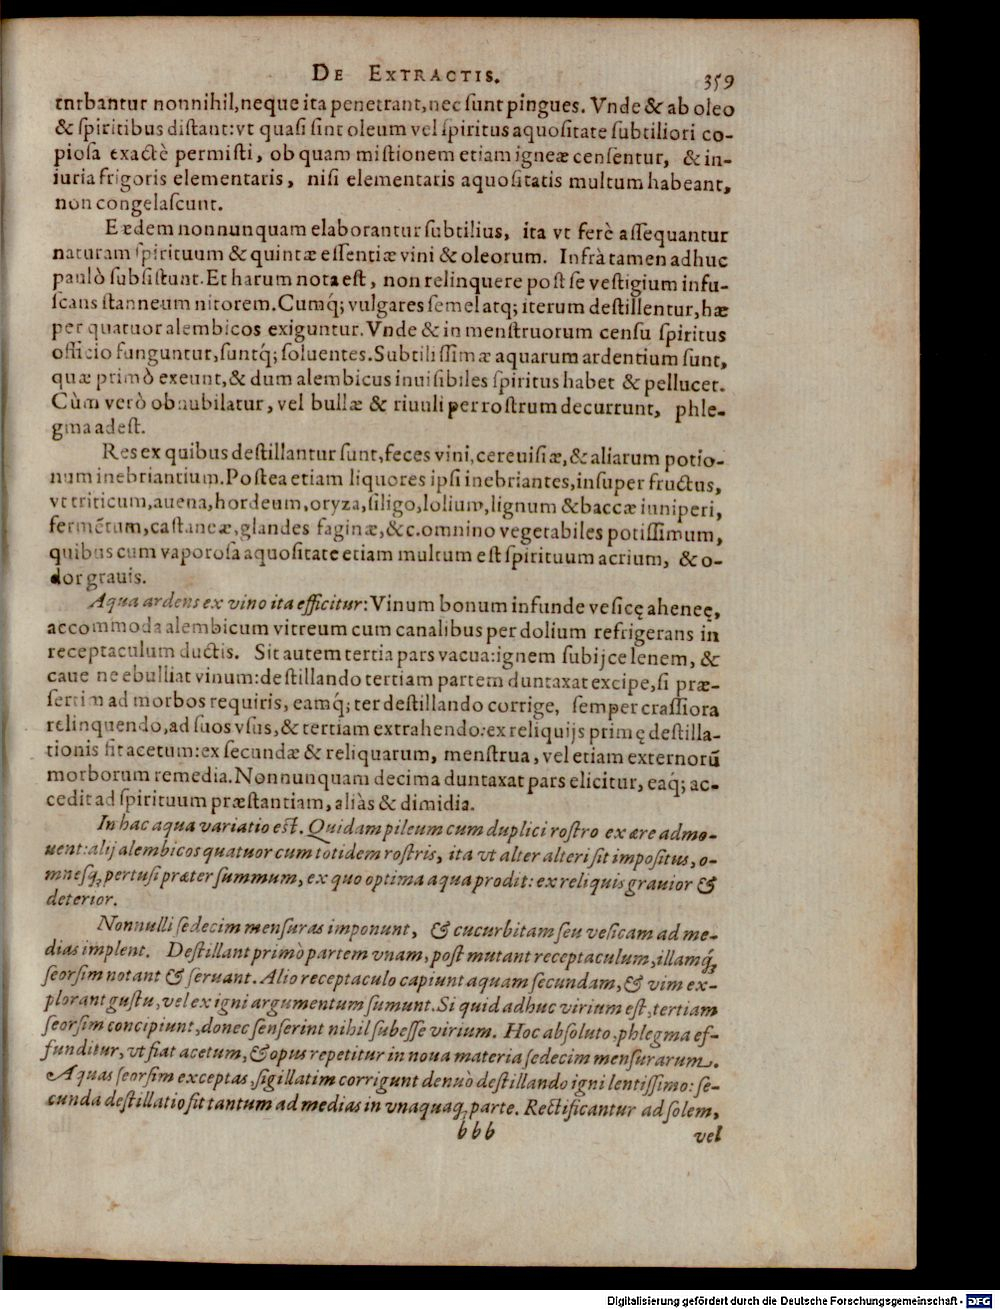 DE EXTRACTIS. 359
turbantur nonnihil, neque ita penetrant, nec sunt pingues. Vnde & ab oleo
& spiritibus distant: vt quasi sint oleum vel spiritus aquositate subtiliori co-
piosa exactè permisti, ob quam mistionem etiam igneæ censentur, & in-
iuria frigoris elementaris, nisi elementaris aquositatis multum habeant,
non congelascunt.
Eædem nonnunquam elaborantur subtilius, ita vt ferè assequantur
naturam spirituum & quintæ essentiæ vini & oleorum. Infrà tamen adhuc
paulò subsistunt. Et harum nota est, non relinquere post se vestigium infu-
scans stanneum nitorem. Cumq́; vulgares semel atq; iterum destillentur, hæ
per quatuor alembicos exiguntur. Vnde & in menstruorum censu spiritus
officio funguntur, suntq́; soluentes. Subtilissimæ aquarum ardentium sunt,
quæ primò exeunt, & dum alembicus inuisibiles spiritus habet & pellucet.
Cùm verò obnubilatur, vel bullæ & riuuli per rostrum decurrunt, phle-
gma adest.
Res ex quibus destillantur sunt, feces vini, cereuisiæ, & aliarum potio-
num inebriantium. Postea etiam liquores ipsi inebriantes, insuper fructus,
vt triticum, auena, hordeum, oryza, siligo, lolium, lignum & baccæ iuniperi,
fermẽtum, castaneæ, glandes faginæ, &c. omnino vegetabiles potissimum,
quibus cum vaporosa aquositate etiam multum est spirituum acrium, & o-
dor grauis.
Aqua ardens ex vino ita efficitur: Vinum bonum infunde vesicę aheneę,
accommoda alembicum vitreum cum canalibus per dolium refrigerans in
receptaculum ductis. Sit autem tertia pars vacua: ignem subijce lenem, &
caue ne ebulliat vinum: destillando tertiam partem duntaxat excipe, si præ-
sertim ad morbos requiris, eamq́; ter destillando corrige, semper crassiora
relinquendo, ad suos vsus, & tertiam extrahendo: ex reliquijs primę destilla-
tionis fit acetum: ex secundæ & reliquarum, menstrua, vel etiam externorũ
morborum remedia. Nonnunquam decima duntaxat pars elicitur, eaq́; ac-
cedit ad spirituum præstantiam, aliàs & dimidia.
In hac aqua variatio est. Quidam pileum cum duplici rostro ex ære admo-
uent: alij alembicos quatuor cum totidem rostris, ita vt alter alteri sit impositus, o-
mnesq; pertusi præter summum, ex quo optima aqua prodit: ex reliquis grauior &
deterior.
Nonnulli sedecim mensuras imponunt, & cucurbitam seu vesicam ad me-
dias implent. Destillant primò partem vnam, post mutant receptaculum, illamq́;
seorsim notant & seruant. Alio receptaculo capiunt aquam secundam, & vim ex-
plorant gustu, vel ex igni argumentum sumunt. Si quid adhuc virium est, tertiam
seorsim concipiunt, donec senserint nihil subesse virium. Hoc absoluto, phlegma ef-
funditur, vt fiat acetum, & opus repetitur in noua materia sedecim mensurarum.
Aquas seorsim exceptas, sigillatim corrigunt denuò destillando igni lentissimo: se-
cunda destillatio fit tantum ad medias in vnaquaq; parte. Rectificantur ad solem,
bbb vel
Digitalisierung gefördert durch die Deutsche Forschungsgemeinschaft - DFG